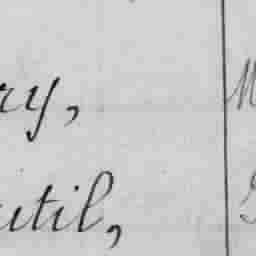 ry,
util,